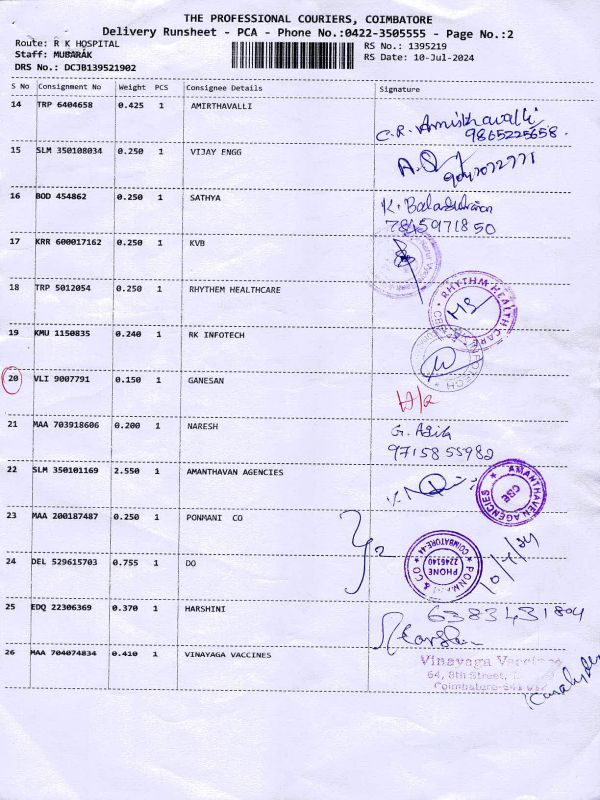 THE PROFESSIONAL COURIERS, COIMBATORE
Delivery Runsheet - PCA - Phone No.:0422-3505555 - Page No.:2
Route: R K HOSPITAL
RS No.: 1395219
Staff: MUBARAK
RS Date: 10-Jul-2024
DRS No.: DCJB139521902
S No Consignment No Weight PCS Consignee Details Signature
14 TRP 6404658 0.425 1 AMIRTHAVALLI
C.R.
9865225658.
15 SLM 350108034 0.250 1 VIJAY ENGG
16 BOD 454862 0.250 1 SATHYA
K. Balasubramanian
7845971850
17 KRR 600017162 0.250 1 KVB
18 TRP 5012054 0.250 1 RHYTHEM HEALTHCARE
RHYTHM HEALTH CARE
19 KMU 1150835 0.240 1 RK INFOTECH
20 VLI 9007791 0.150 1 GANESAN
21 MAA 703918606 0.200 1 NARESH
G. Agila
9715855982
22 SLM 350101169 2.550 1 AMANTHAVAN AGENCIES
AMANTHAVEN AGENCIES
CBE
23 MAA 200187487 0.250 1 PONMANI CO
COIMBATORE-44
PHONE
2246140
& CO
24 DEL 529615703 0.755 1 DO
10/7/24
25 EDQ 22306369 0.370 1 HARSHINI
6383431804
26 MAA 704074834 0.410 1 VINAYAGA VACCINES
Vinayaga Vaccines
64, 8th Street,
Coimbatore-641